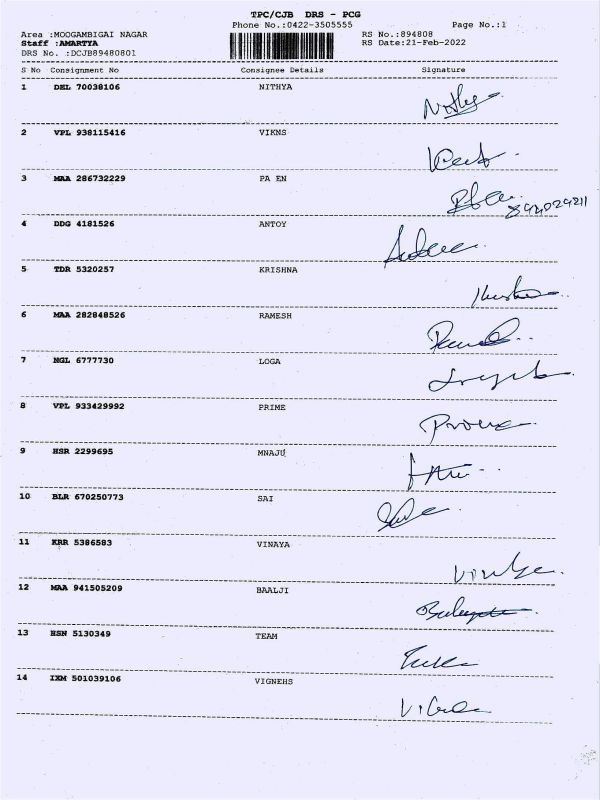 TPC/CJB DRS - PCG
Phone No.:0422-3505555 Page No.:1
Area :MOOGAMBIGAI NAGAR RS No.:894808
Staff :AMARTYA RS Date:21-Feb-2022
DRS No. :DCJB89480801
S No Consignment No Consignee Details Signature
1 DEL 70038106 NITHYA
2 VPL 938115416 VIKNS
3 MAA 286732229 PA EN
4 DDG 4181526 ANTOY
5 TDR 5320257 KRISHNA
6 MAA 282848526 RAMESH
7 NGL 6777730 LOGA
8 VPL 933429992 PRIME
9 HSR 2299695 MNAJU
10 BLR 670250773 SAI
11 KRR 5386583 VINAYA
12 MAA 941505209 BAALJI
13 HSN 5130349 TEAM
14 IXM 501039106 VIGNEHS